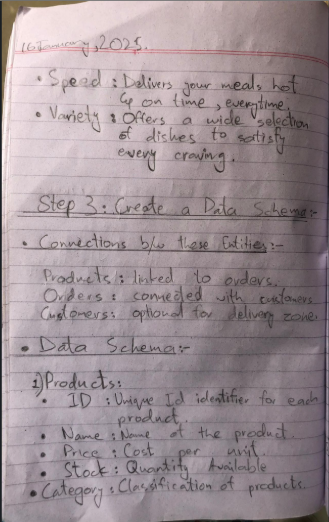 16 January, 2025.
• Speed : Delivers your meals hot
& on time, everytime.
• Variety : Offers a wide selection
of dishes to satisfy
every craving.
Step 3: Create a Data Schema:-
• Connections b/w these Entities:-
Products : linked to orders.
Orders : connected with customers
Customers: optional for delivery zone.
• Data Schema:-
1) Products:
• ID : Unique Id identifier for each
product.
• Name : Name of the product
• Price : Cost per unit.
• Stock : Quantity Available
• Category : Classification of products.